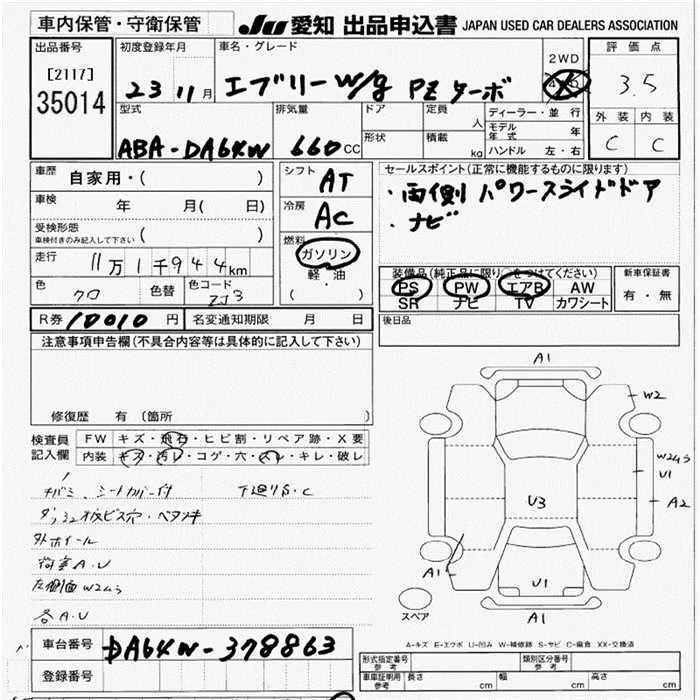 車内保管・守衛保管
JU 愛知 出品申込書 JAPAN USED CAR DEALERS ASSOCIATION
出品番号
[2117]
35014
初度登録年月
23 11月
車名・グレード
エブリーW/g PZ ターボ
2WD
4WD
評価点
3.5
外装 内装
C C
型式
ABA-DA64W
排気量
660cc
ドア
形状
定員
人
積載
kg
ディーラー・並行
モデル年式 年
ハンドル 左・右
車歴
自家用・( )
車検
年 月( 日)
受検形態
車検付きのみ記入して下さい ( )
走行
11万1千944km
色
クロ
色替
色コード
ZJ3
シフト
AT
冷房
AC
燃料
ガソリン
軽・油
( )
セールスポイント(正常に機能するものに限ります)
・両側パワースライドドア
・ナビ
装備品(純正品に限り○をつけてください)
PS PW エアB AW
SR ナビ TV カワシート
新車保証書
有・無
R券 10010円
名変通知期限 月 日
後日品
注意事項申告欄(不具合内容等は具体的に記入して下さい)
修復歴 有(箇所
検査員
記入欄
FW キズ・飛石・ヒビ割・リペア跡・X要
内装 キズ・汚レ・コゲ・穴・スレ・キレ・破レ
チバミ、シートカバー付 下廻りS・C
ダッシュ板ビス穴・ベタツキ
外ホイール
荷室A.U
左側面W2 4ヶ
各A.U
A1
W2
W2 4ヶ
U1
A2
U3
A1
U1
A1
スペア
A-キズ E-エクボ U-凹ミ W-補修跡 S-サビ C-腐食 XX-交換済
車台番号
DA64W-378863
登録番号
形式指定番号
参考
類別区分番号
参考
車庫証明用
参考
長さ cm 幅 cm 高さ cm